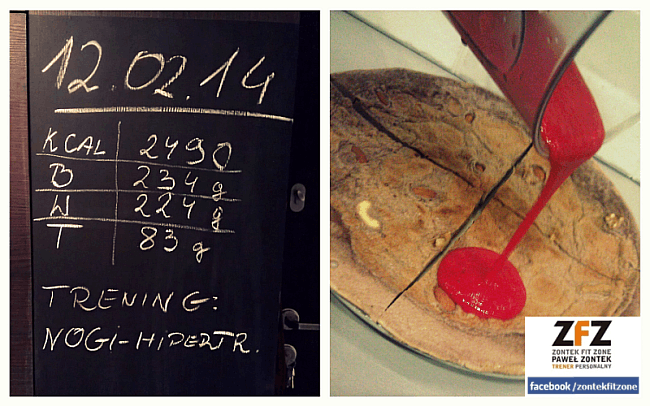 12.02.14
KCAL 2490
B 234 g
W 224 g
T 83 g
TRENING:
NOGI-HIPERTR.
ZFZ
ZONTEK FIT ZONE
PAWEŁ ZONTEK
TRENER PERSONALNY
facebook/zontekfitzone